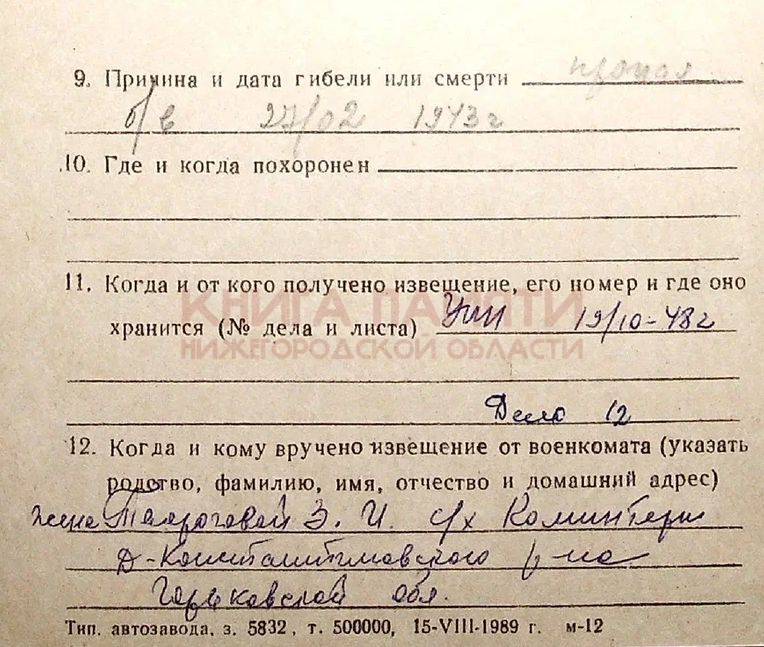 9. Причина и дата гибели или смерти пропал
б/в 27/02 1943г
10. Где и когда похоронен
11. Когда и от кого получено извещение, его номер и где оно
КНИГА ПАМЯТИ
хранится (№ дела и листа) 19/10-48г
НИЖЕГОРОДСКОЙ ОБЛАСТИ
Дело 12
12. Когда и кому вручено извещение от военкомата (указать
родство, фамилию, имя, отчество и домашний адрес)
жена З. И. с/х Коминтерн
Д-Константиновского р-на
Горьковской обл.
Тип. автозавода, з. 5832, т. 500000, 15-VIII-1989 г. м-12